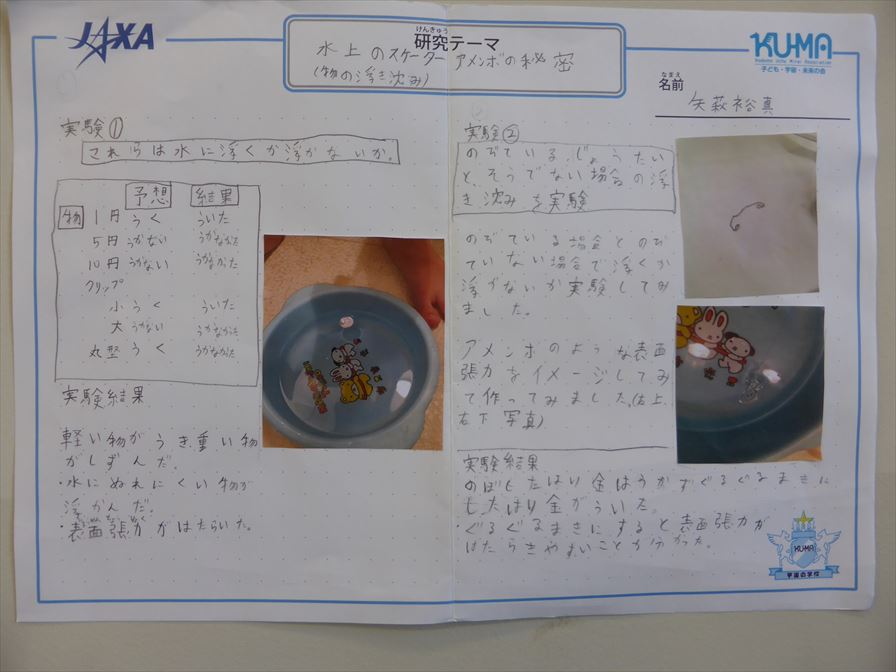 JAXA
けんきゅう
研究テーマ
水上のスケーター アメンボの秘密
(物の浮き沈み)
KU-MA
Kodomo Uchu Mirai Association
子ども・宇宙・未来の会
なまえ
名前
矢萩裕真
実験①
これらは水に浮くか浮かないか。
予想 結果
物 1円 うく ういた
5円 うかない うかなかった
10円 うかない うかなかった
クリップ
小 うく ういた
大 うかない うかなかった
丸型 うく うかなかった
実験結果
軽い物がうき重い物
がしずんだ。
・水にぬれにくい物が
浮かんだ。
・表面張力がはたらいた。
実験②
のびている、じょうたい
と、そうでない場合の浮
き沈みを実験
のびている場合とのび
ていない場合で浮くか
浮かないか実験してみ
ました。
アメンボのような表面
張力をイメージしてみ
て作ってみました。(右上、
右下 写真)
実験結果
のばしたはり金はうかずぐるぐるまきに
したはり金がういた。
・ぐるぐるまきにすると表面張力が
はたらきやすいことが分かった。
KU-MA
宇宙の学校